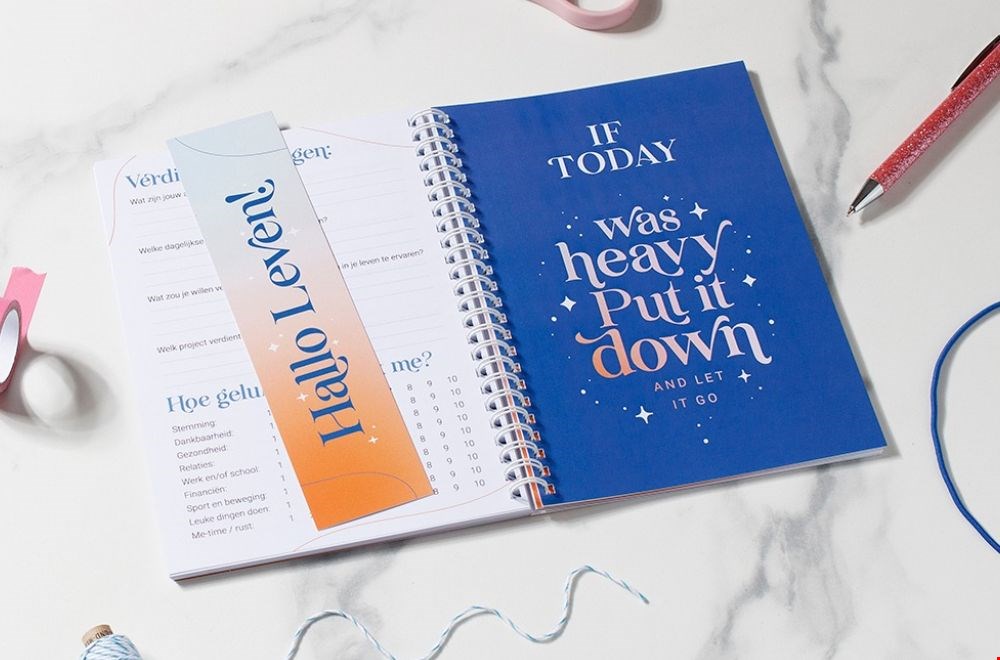 Verdi
gen:
Wat zijn jouw
Welke dagelijkse
n?
in je leven te ervaren?
Wat zou je willen
Welk project verdient
Hoe gelu
me?
Stemming: 1 8 9 10
Dankbaarheid: 1 8 9 10
Gezondheid: 1 8 9 10
Relaties: 1 8 9 10
Werk en/of school: 1 8 9 10
Financiën: 1 8 9 10
Sport en beweging: 1 8 9 10
Leuke dingen doen: 1 8 9 10
Me-time / rust: 1 8 9 10
Hallo Leven!
IF
TODAY
was
heavy
Put it
down
AND LET
IT GO